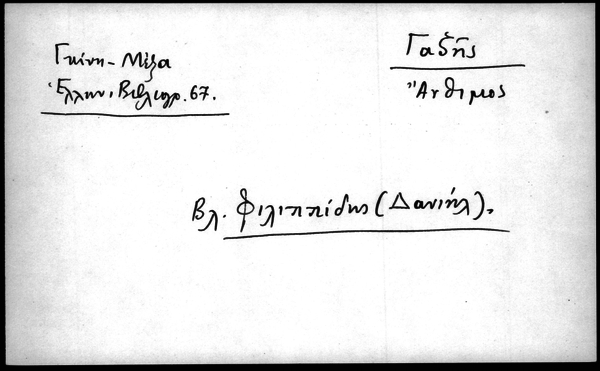 Γκίνη-Μέξα
Ἑλλην. Βιβλιογρ. 67.
Γαζῆς
Ἄνθιμος
Βλ. Φιλιππίδης (Δανιήλ).